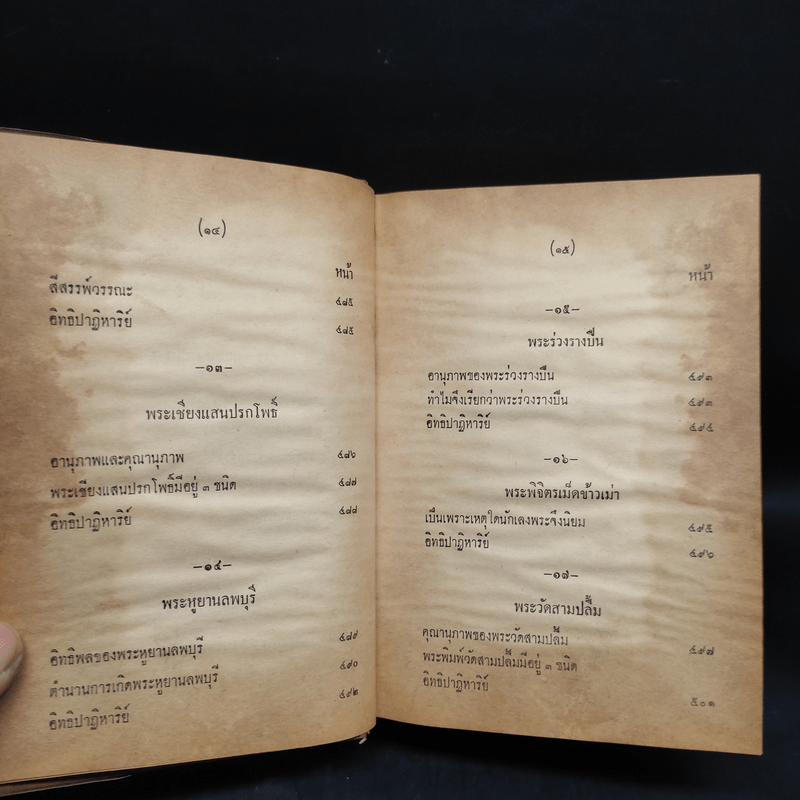 (๑๔)
หน้า
สีสรรพ์วรรณะ ๔๘๕
อิทธิปาฏิหาริย์ ๔๘๕
—๑๓—
พระเชียงแสนปรกโพธิ์
อานุภาพและคุณานุภาพ ๔๘๖
พระเชียงแสนปรกโพธิ์มีอยู่ ๓ ชนิด ๔๘๗
อิทธิปาฏิหาริย์ ๔๘๘
—๑๔—
พระหูยานลพบุรี
อิทธิพลของพระหูยานลพบุรี ๔๘๙
ตำนานการเกิดพระหูยานลพบุรี ๔๙๐
อิทธิปาฏิหาริย์ ๔๙๒
(๑๕)
หน้า
—๑๕—
พระร่วงรางปืน
อานุภาพของพระร่วงรางปืน ๔๙๓
ทำไมจึงเรียกว่าพระร่วงรางปืน ๔๙๓
อิทธิปาฏิหาริย์ ๔๙๔
—๑๖—
พระพิจิตรเม็ดข้าวเม่า
เป็นเพราะเหตุใดนักเลงพระจึงนิยม ๔๙๕
อิทธิปาฏิหาริย์ ๔๙๖
—๑๗—
พระวัดสามปลื้ม
คุณานุภาพของพระวัดสามปลื้ม ๔๙๗
พระพิมพ์วัดสามปลื้มมีอยู่ ๓ ชนิด
อิทธิปาฏิหาริย์ ๕๐๑